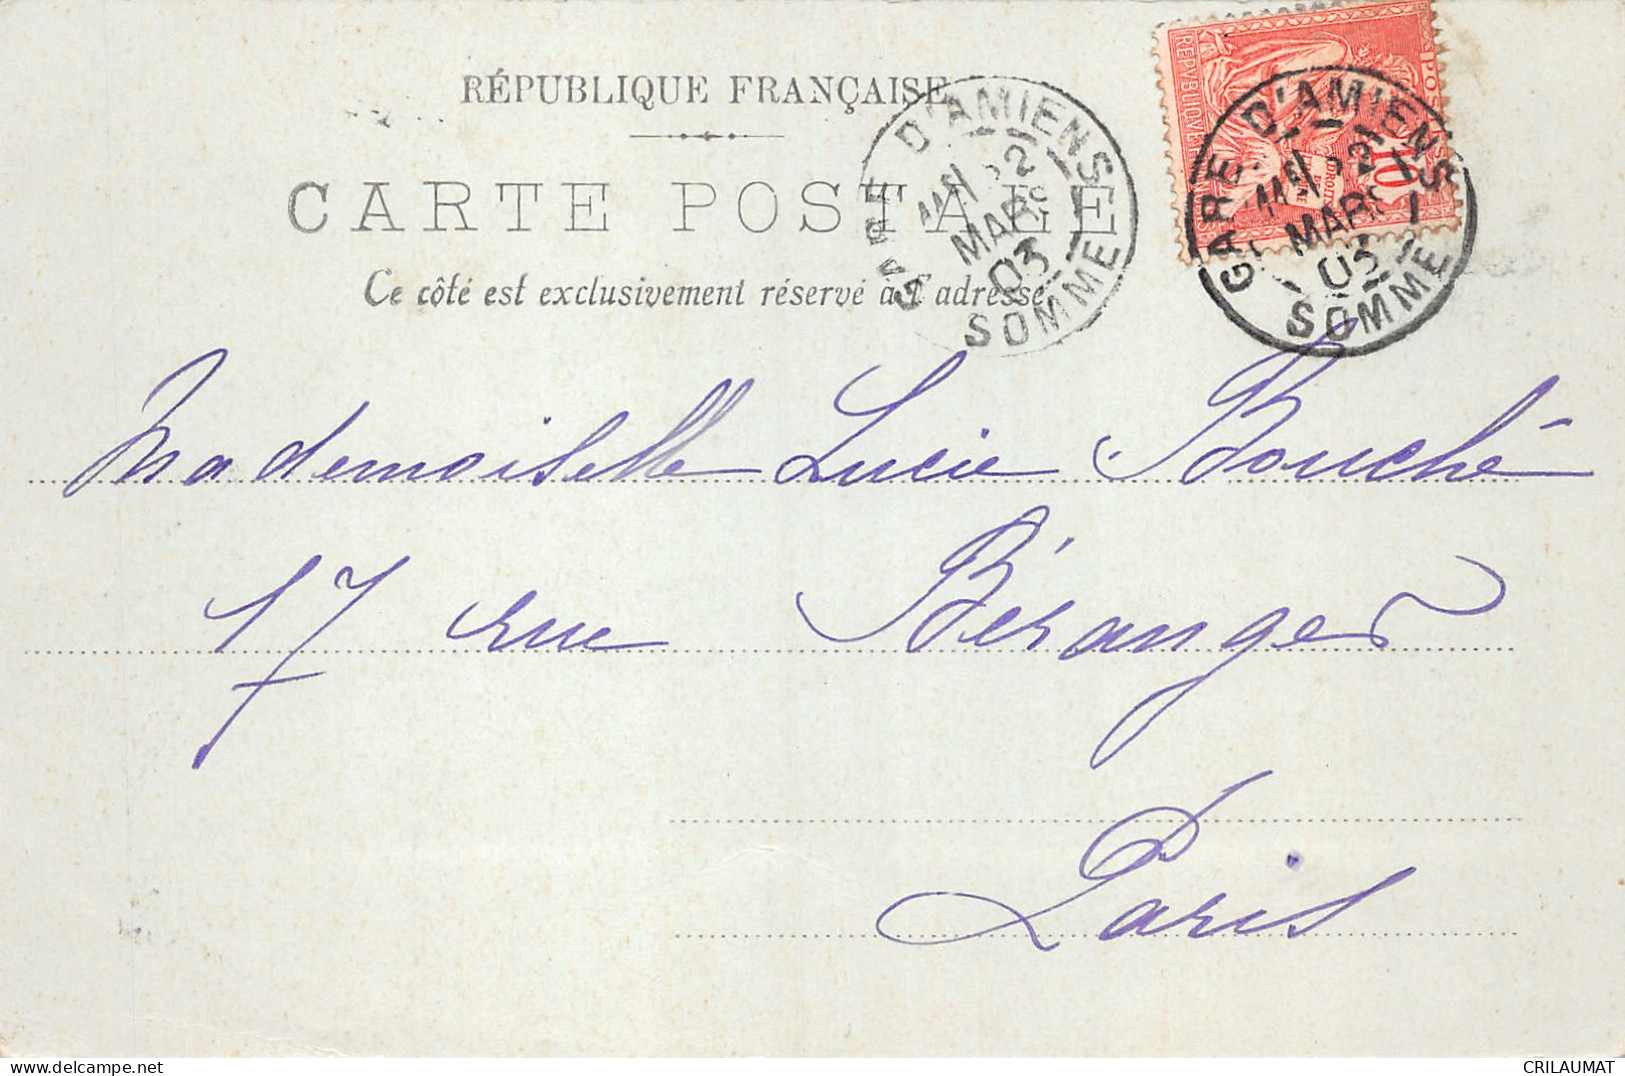 RÉPUBLIQUE FRANÇAISE
CARTE POSTALE
Ce côté est exclusivement réservé à l'adresse
GARE D'AMIENS
MARS
03
SOMME
10
GARE D'AMIENS
MARS
03
SOMME
Mademoiselle Lucie Bouché
17 rue Béranger
Paris
CRILAUMAT